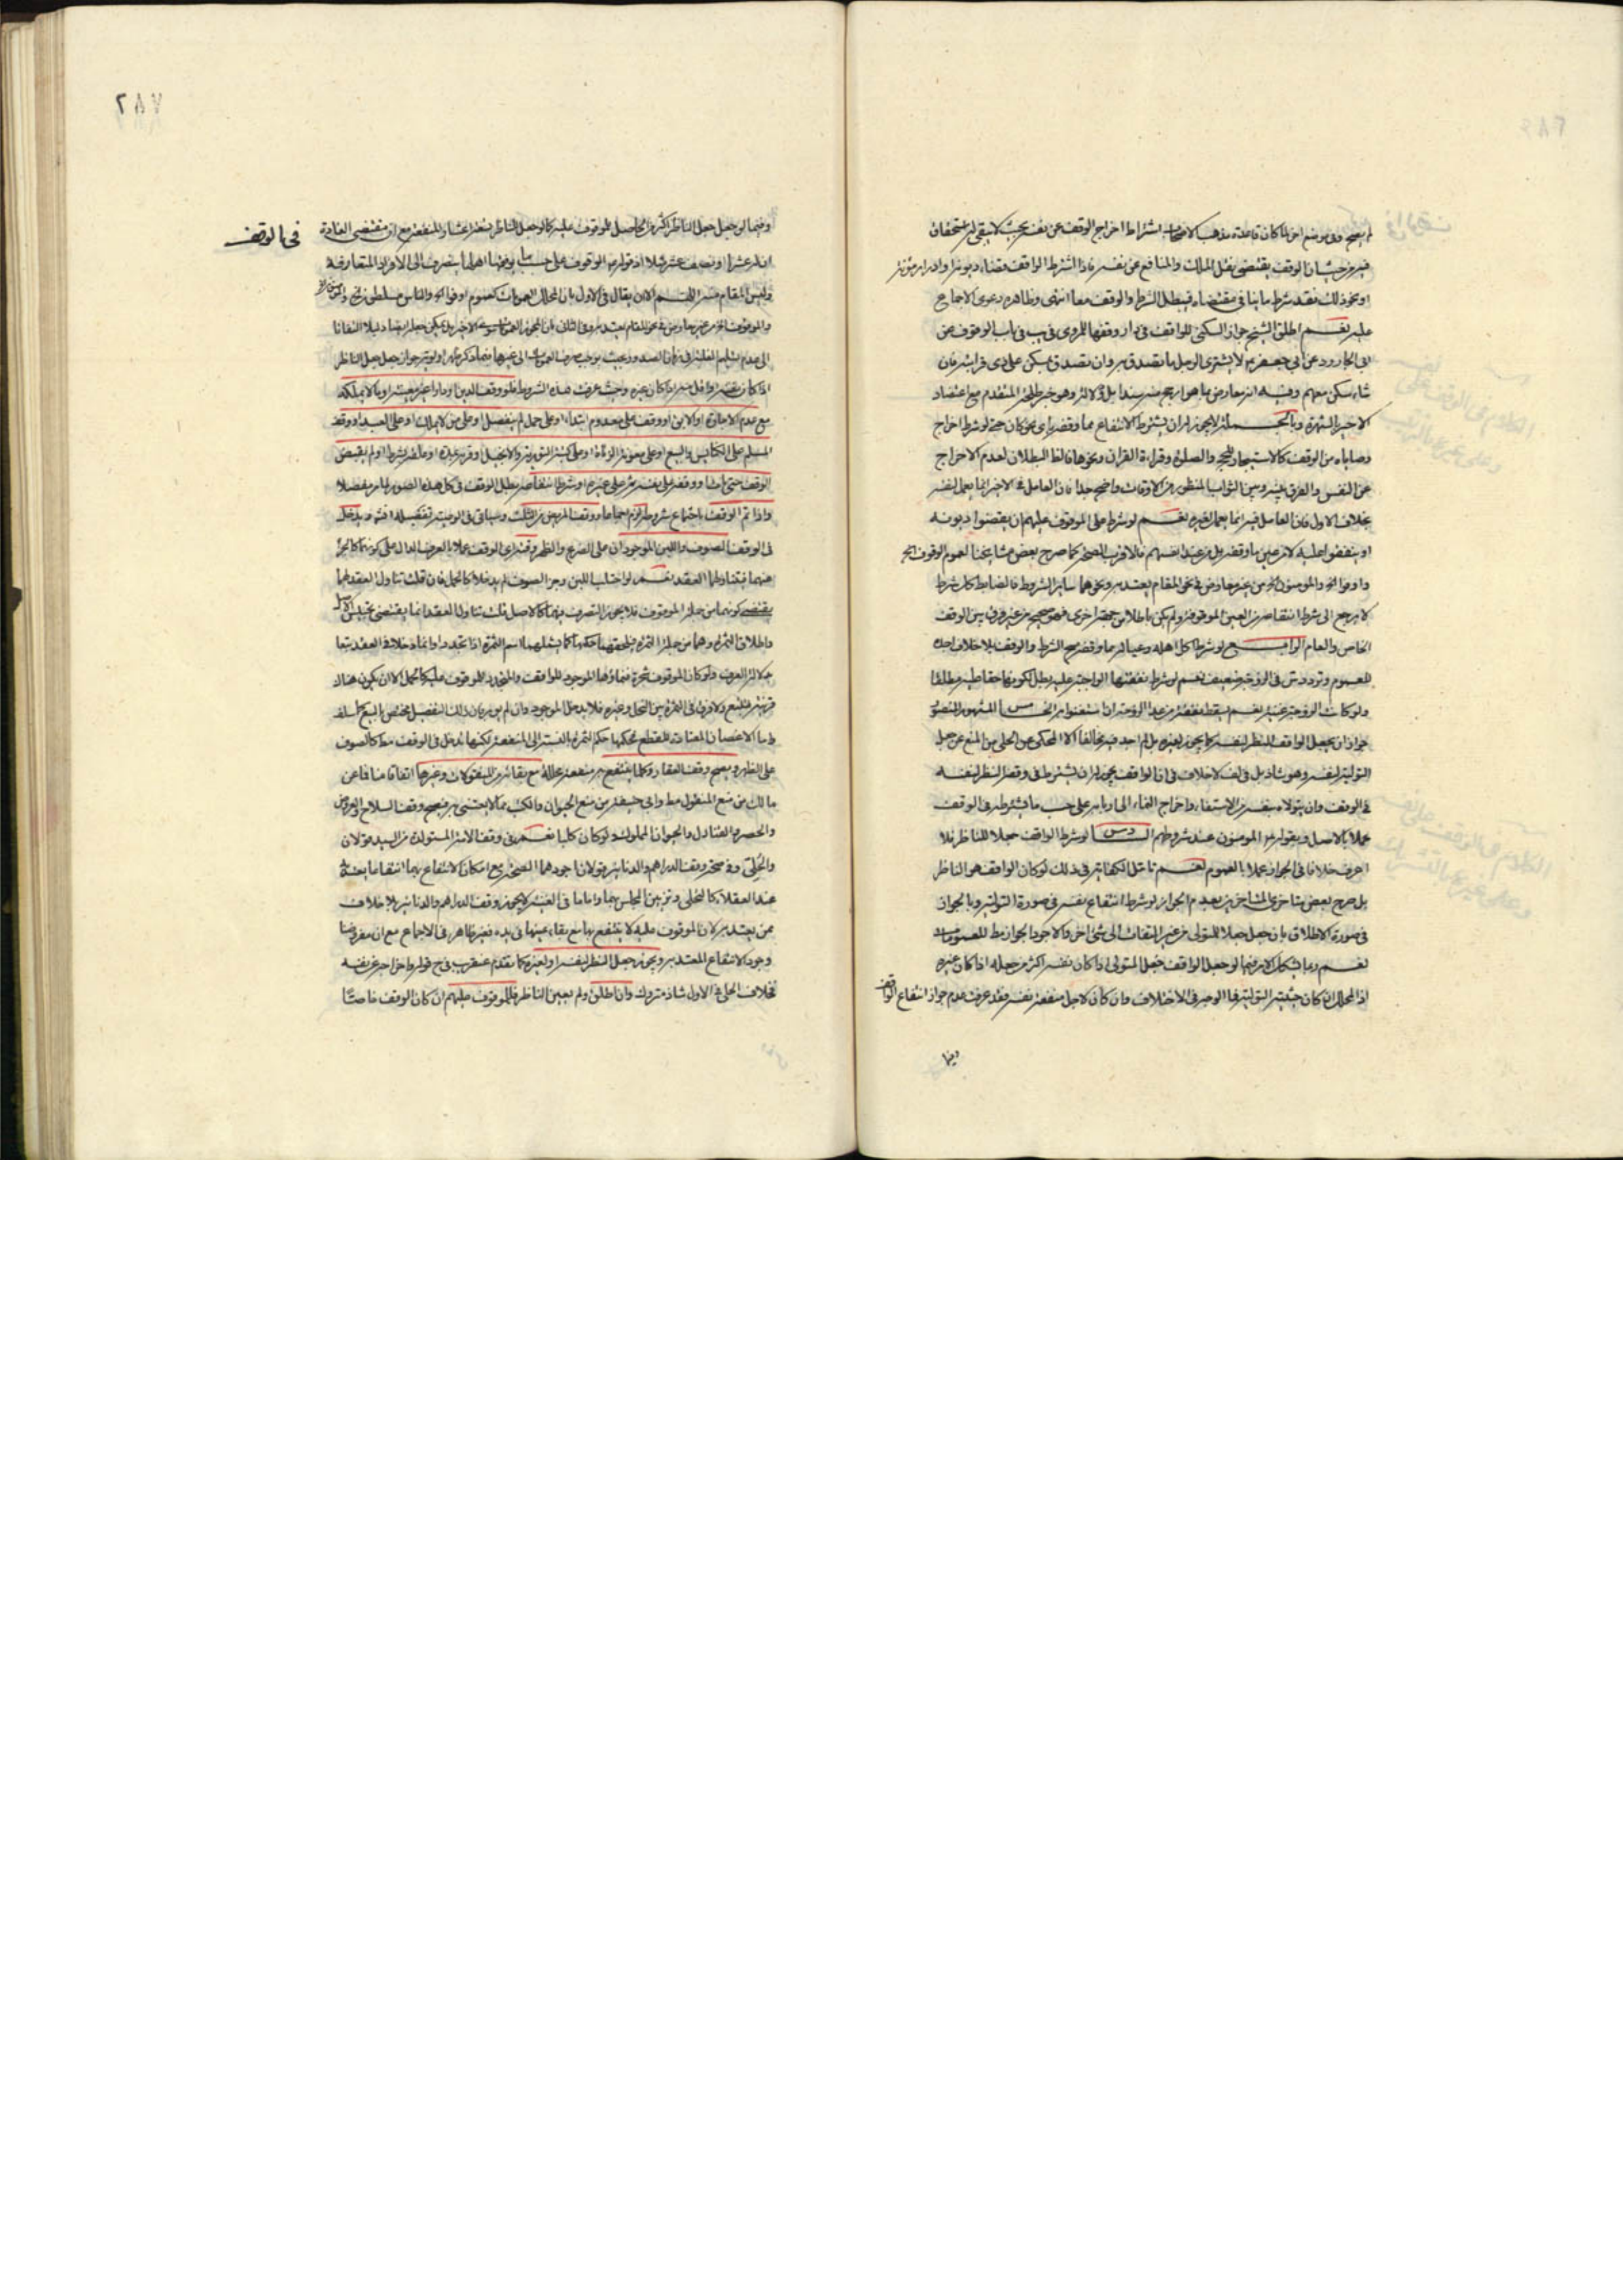 لم يصح وفي موضع اخر لما كان قاعدة مذهب الاصحاب اشتراط اخراج الوقف عن نفسه بحيث لا يبقى له استحقاق
فيه من حيث ان الوقف يقتضى نقل الملك والمنافع عن نفسه فاذا اشترط الواقف قضاء ديونه او ادرار مؤنته
او نحو ذلك فقد شرط ما ينافي مقتضاه فيبطل الشرط والوقف معا انتهى وظاهره دعوى الاجماع
عليه نعم اطلق الشيخ جواز السكنى للواقف في دار وقفها للمروى في يب في باب الوقوف عن
ابي الجارود عن ابي جعفر لا يشترى الرجل ما تصدق به وان تصدق بمسكن على ذى قرابته فان
شاء سكن معهم وفيه انه معارض بما هو ارجح منه سندا بل ودلالة وهو خبر طلحة المتقدم مع اعتضاد
الاخير بالشهرة وبالجملة لا يجوز له ان يشترط الانتفاع بما وقفه باى نحو كان حتى لو شرط اخراج
وصاياه من الوقف كالاستيجار للحج والصلوة وقراءة القران ونحوها فالظ البطلان لعدم الاخراج
عن النفس والفرق بينه وبين الثواب المنظور من الاوقاف واضح جدا فان العامل في الاخير انما يعمل لنفسه
بخلاف الاول فان العامل فيه انما يعمل لغيره نعم لو شرط على الموقوف عليهم ان يقضوا ديونه
او ينفقوا عليه لا من عين ما وقفه بل من عند انفسهم فالاقرب الصحة كما صرح بعض مشايخنا لعموم الوقوف الخ
واوفوا الخ والمؤمنون الخ من غير معارض في نحو المقام يعتد به ونحوهما ساير الشروط فالضابط كل شرط
لا يرجع الى شرط انتفاعه من العين الموقوفة ولم يكن باطلا من جهة اخرى فهو صحيح من غير فرق بين الوقف
الخاص والعام الرابع لو شرط اكل اهله وعياله مما وقفه صح الشرط والوقف بلا خلاف اجده
للعموم وتردد ش في الزوجة ضعيف نعم لو شرط نفقتها الواجبة عليه بطل لكونها حقا عليه مطلقا
ولو كانت الزوجة غنية نعم يسقط نفقة من عدا الزوجة ان استغنوا به الخامس المشهور المنصور
جواز ان يجعل الواقف النظر لنفسه كما يجوز لغيره بل لم اجد فيه مخالفا الا المحكى عن الحلى من المنع عن جعل
التولية لنفسه وهو شاذ بل في لف لا خلاف في ان الواقف يجوز له ان يشترط في وقفه النظر لنفسه
في الوقف وان يتولاه بنفسه من الاستيفاء واخراج النماء الى اربابه على حسب ما يشترطه في الوقف
عملا بالاصل وبقوله المؤمنون عند شروطهم السادس لو شرط الواقف جعلا للناظر فلا
اعرف خلافا في الجواز عملا بالعموم نعم تامل الكفاية في ذلك لو كان الواقف هو الناظر
بل صرح بعض متاخرى المتاخرين بعدم الجواز لو شرط انتفاع نفسه في صورة التولية وبالجواز
في صورة الاطلاق بان جعل جعلا للمتولى من غير التفات الى شئ اخر والاجود الجواز مط للعمومات
نعم ربما يشكل الامر فيما لو جعل الواقف جعل المتولى اذا كان نفسه اكثر من جعله اذا كان غيره
اذ المحلل ان كان حيثية التولية فما الوجه في الاختلاف وان كان لاجل منفعة نفسه فقد عرفت عدم جواز انتفاع الواقف
وفيما
٢٨٧
في الوقف
وفيما لو جعل جعل الناظر اكثر من الحاصل للموقوف عليه كما لو جعل للناظر تسعة اعشار المنفعة مع ان مقتضى العادة
ان له عشرا او نصف عشر مثلا اذ قوله الوقوف على حسب ما يوقفها اهلها ينصرف الى الافراد المتعارفة
وليس المقام منه اللهم الا ان يقال في الاول بان المحلل العمومات كعموم اوفوا الخ والناس مسلطون الخ
الى عدم تسليم الغلبة في زمان الصدور بحيث يوجب صرف العمومات الى غيرها فما ذكر
اذا كان نفسه واقل منه اذا كان غيره وحيث عرفت هذه الشروط فلو وقف الدين او دارا غير معينة او ما لا يملكه
مع عدم الاجازة او الابق او وقف على معدوم ابتداء او على حمل لم ينفصل او على من لا يملك او على العبد او وقف
المسلم على الكنايس والبيع او على معونة الزناة او على كتبة التورية والانجيل او قرنه بمدة او علقه بشرط او لم يقبض
الوقف حتى مات او وقف على نفسه ثم على غيره او شرط انتفاعه بطل الوقف في كل هذه الصور لما مر مفصلا
واذا تم الوقف باجتماع شروطه لزم اجماعا ووقف المريض من الثلث وسياتى في الوصية تفصيله انش ويدخل
في الوقف الصوف واللبن الموجودان على الضرع والظهر وقت اجراء الوقف عملا بالعرف الدال على كونهما كالجزء
منهما فيتناولهما العقد نعم لو احتلب اللبن وجز الصوف لم يدخلا كالحمل فان قلت تناول العقد لهما
يقتضى كونهما من جملة الموقوف فلا يجوز التصرف فيهما كالاصل قلت تناول العقد انما يقتضى تحبيس الاصل
واطلاق الثمرة وهما من جملة الثمرة فيلحقهما حكمها كما يشملهما اسم الثمرة اذا تجددا وانما دخلا في العقد تبعا
لدلالة العرف ولو كان الموقوف شجرة فنماؤها الموجود للواقف والمتجدد للموقوف عليه كالحمل الا ان يكون هناك
قرينة فيتبع ولا فرق في الثمرة بين النخل وغيره فلا يدخل الموجود وان لم يؤبر بان ذلك التفصيل مختص بالبيع كما سلف
واما الاغصان المعتادة للقطع فحكمها حكم الثمرة بالنسبة الى المنفعة لكنها تدخل في الوقف مط كالصوف
على الظهر ويصح وقف العقار وكلما ينتفع به منفعة محللة مع بقائه من المنقولات وغيرها اتفاقا منا
مالك من منع المنقول مط وابي حنيفة من منع الحيوان والكتب مما لا يعتنى به فيصح وقف السلاح والعروض
والحصر والقناديل والحيوان المملوك ولو كان كلبا نعم في وقف الامة المستولدة من السيد قولان
والحلى وفي صحة وقف الدراهم والدنانير قولان اجودهما الصحة مع امكان الانتفاع بهما انتفاعا يعتد به
عند العقلاء كالتحلى وتزيين المجلس بهما واما ما في الغنية لا يجوز وقف الدراهم والدنانير بلا خلاف
ممن يعتد به لان الموقوف عليه لا ينتفع بها مع بقاء عينها في يده فغير ظاهر في الاجماع مع ان مفروضنا
وجود الانتفاع المعتد به ويجوز جعل النظر لنفسه او لغيره كما تقدم عنقريب في ح قوله واخراجه عن نفسه
بخلاف الحلى في الاول شاذ متروك وان اطلق ولم يعين الناظر فللموقوف عليهم ان كان الوقف خاصا